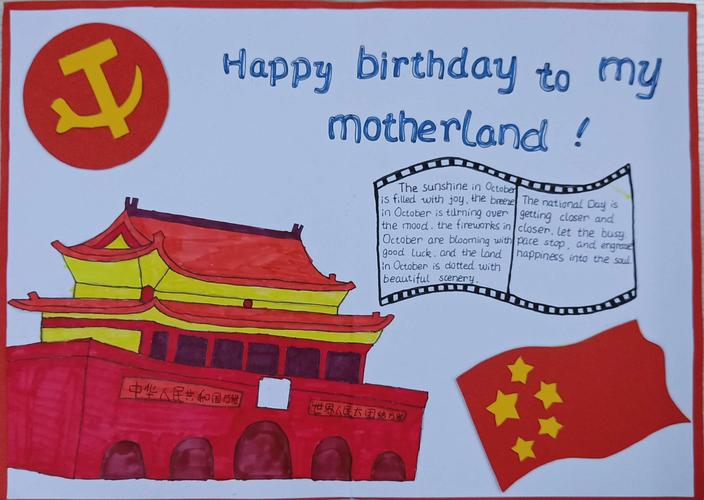 Happy birthday to my
motherland !
The sunshine in October
is filled with joy, the breeze
in October is turning over
the mood, the fireworks in
October are blooming with
good luck, and the land
in October is dotted with
beautiful scenery.
The national Day is
getting closer and
closer, let the busy
pace stop, and engrave
happiness into the soul
中华人民共和国万岁
世界人民大团结万岁